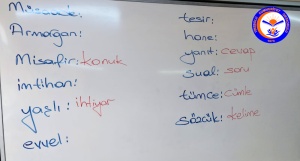 Armağan:
Misafir: konuk
imtihan:
yaşlı: ihtiyar
evvel:
tesir:
hane:
yanıt: cevap
sual: soru
tümce: cümle
sözcük: kelime